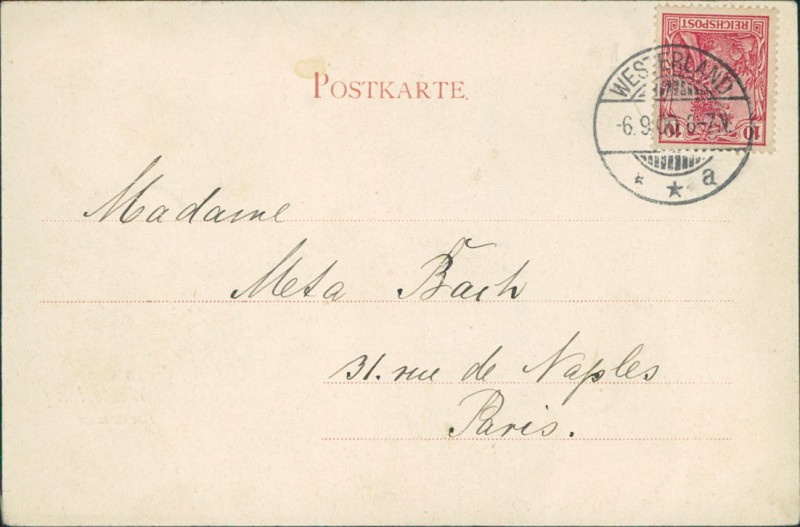 POSTKARTE.
REICHSPOST
10 10
WESTERLAND
-6.9. 6-7V.
* * a
Madame
Meta Bach
31. rue de Naples
Paris.